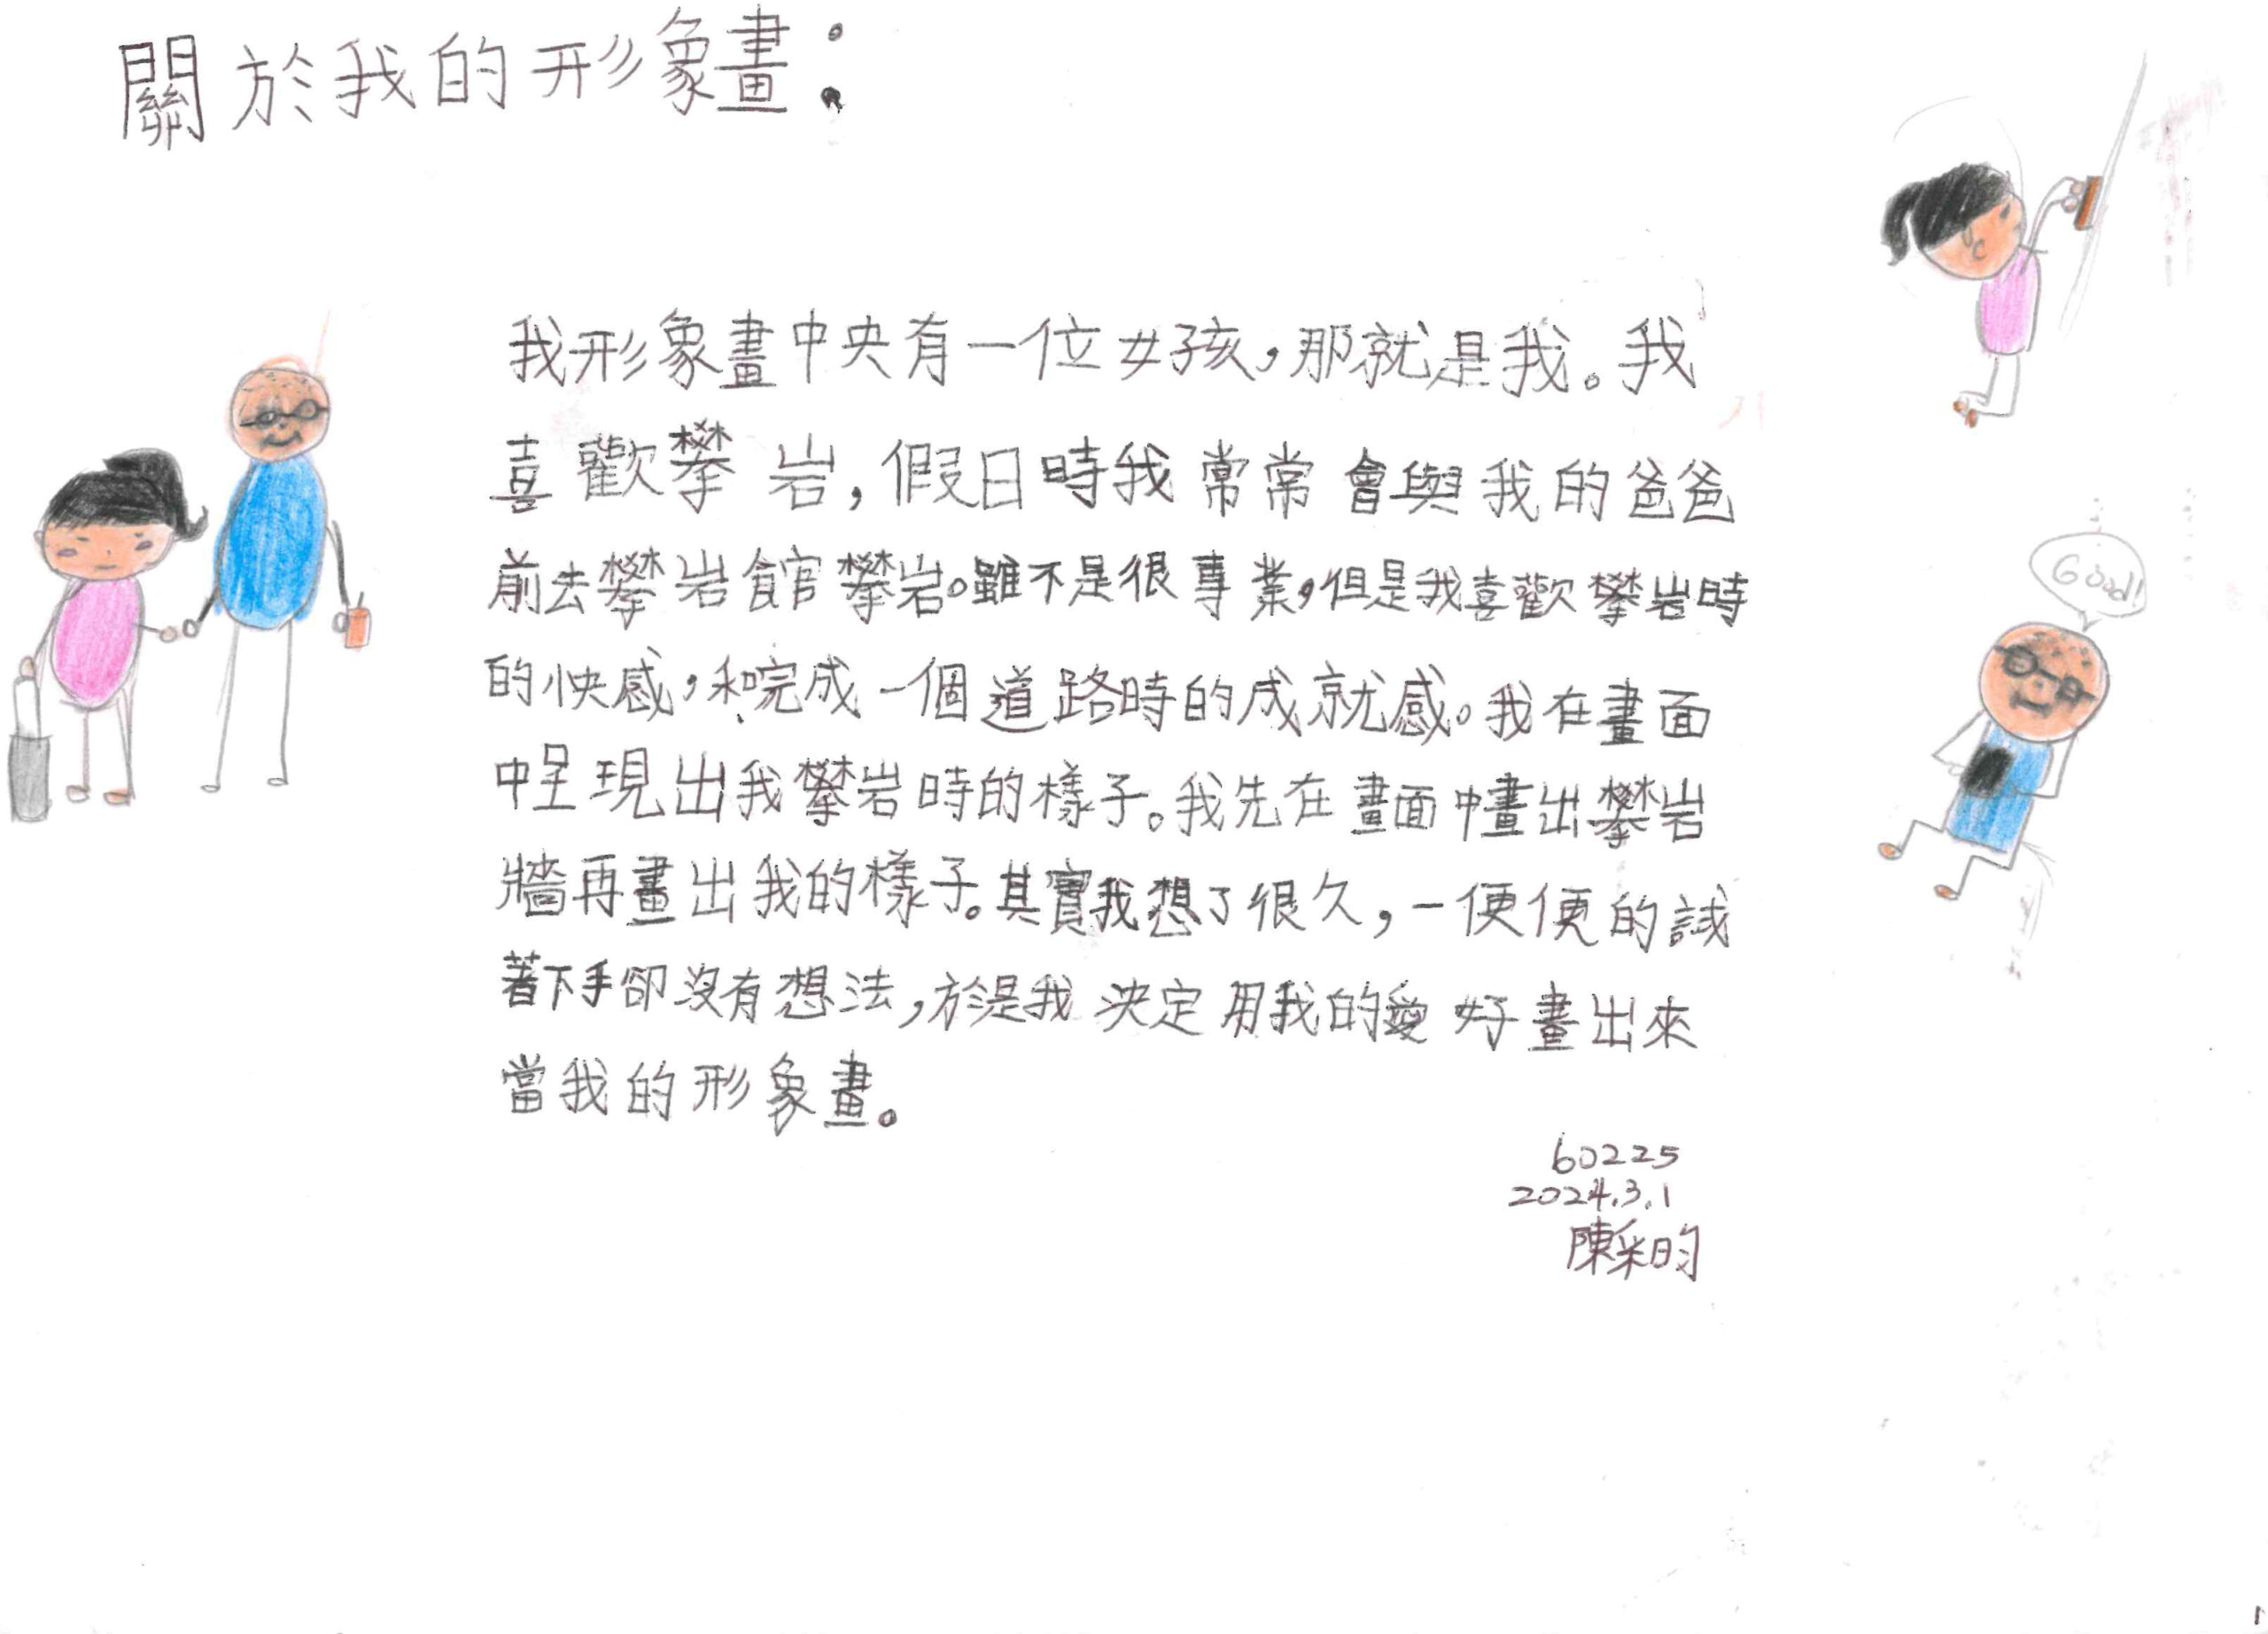 關於我的形象畫：
我形象畫中央有一位女孩，那就是我。我
喜歡攀岩，假日時我常常會與我的爸爸
前去攀岩館攀岩。雖不是很專業，但是我喜歡攀岩時
的快感，和完成一個道路時的成就感。我在畫面
中呈現出我攀岩時的樣子。我先在畫面中畫出攀岩
牆再畫出我的樣子。其實我想了很久，一便便的試
著下手卻沒有想法，於是我決定用我的愛好畫出來
當我的形象畫。
Good!
60225
2024.3.1
陳采昀